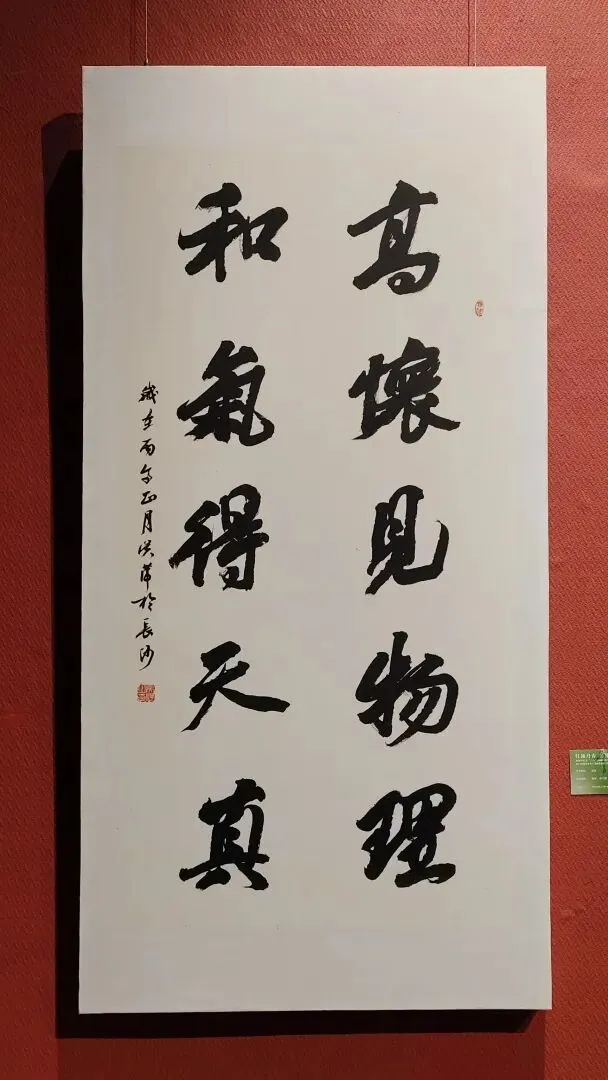 高懷見物理
和氣得天真
歲在丙午正月洪苇於長沙